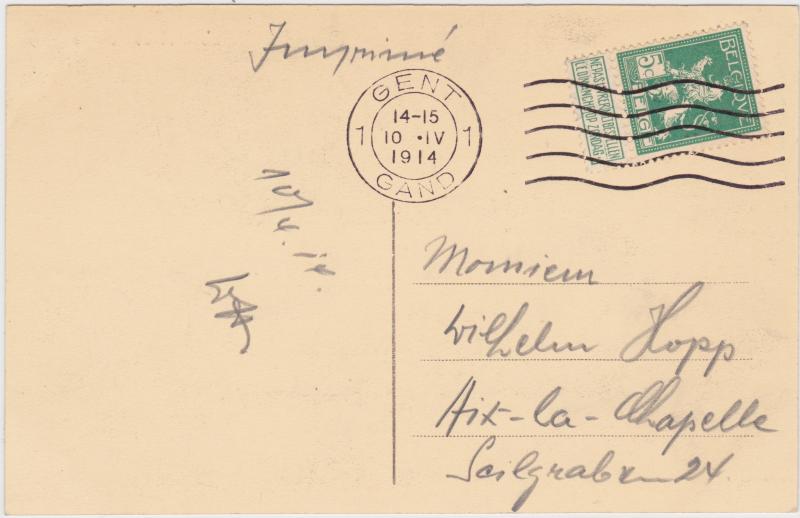 Imprimé
GENT
1 14-15 1
10 · IV
1914
GAND
BELGIQUE
5c
BELGIË
NE PAS LIVRER LE DIMANCHE
NIET BESTELLEN OP ZONDAG
10/4.14.
Monsieur
Wilhelm Hopp
Aix-la-Chapelle
Seilgraben 24.